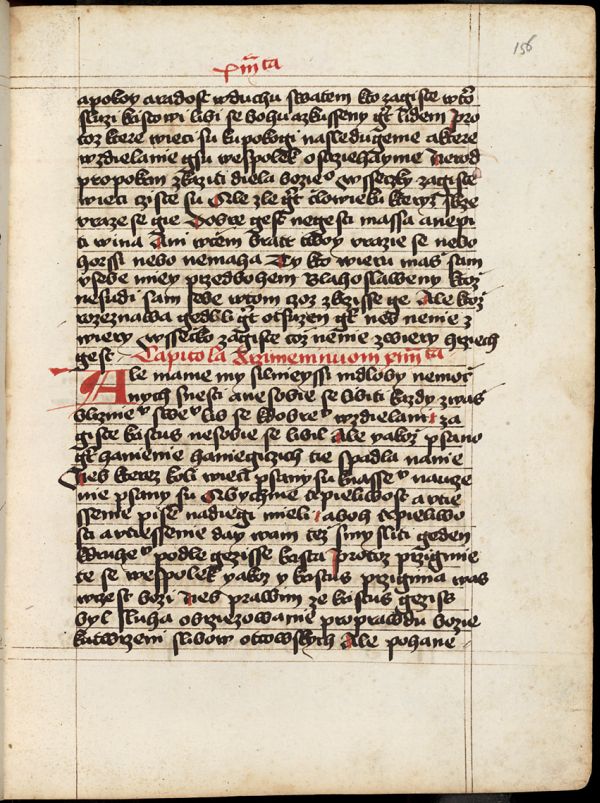 156
xiiii ta
apokoy a radost w duchu swatem kto zagiste w to
sluzi kristowi libi se bohu a zkusseny gt lidem Pro
toz ktere wieci su ku pokogi nasledugeme a ktere
wzdielanie gsu wespolek ostziehayme Nerod
pro pokrm zkaziti diela bozie Wsseczky zagiste
wieci cziste su Ale zle gt czlowieku kteryz skrze
vraze se gie Dobre gest negesti massa a nepi
ti wina Ani w czem bratr twoy vrazie se nebo
horssi nebo nemaha Ty kto wieru mas sam
v sebe miey przed bohem Blahoslaweny ktoz
nesudi sam sebe w tom czoz zkusse ge Ale ktoz
rozeznawa gedl li gt otsuzen gt neb nenie z
wiery Wssecko zagiste coz nenie z wiery hrziech
gest Capitola
Ale mame my silnieyssi mdloby nemoc
nych snesti a ne sobie se libiti kazdy z was
bliznie swe lib se k dobre wzdielani za
giste kristus ne sobie se libil Ale yakoz psano
gt hanienie haniegiczich tie spadla na mie
Neb kterez koli wieci psany su k nasse nauce
nie psany su Abychme trpieliwost a vtie
ssenie pisem nadiegi mieli a boh trpieliwo
sti a vtiessenie day wam tez smysliti geden
k druhe podle gezisse krista Protoz przigmie
te se wespolek yakoz y kristus przigima was
w czest bozi Neb prawim ze kristus gezis
byl sluha obrziezowanie pro prawdu bozie
ku twrzeni slibow otcowskych Ale pohane